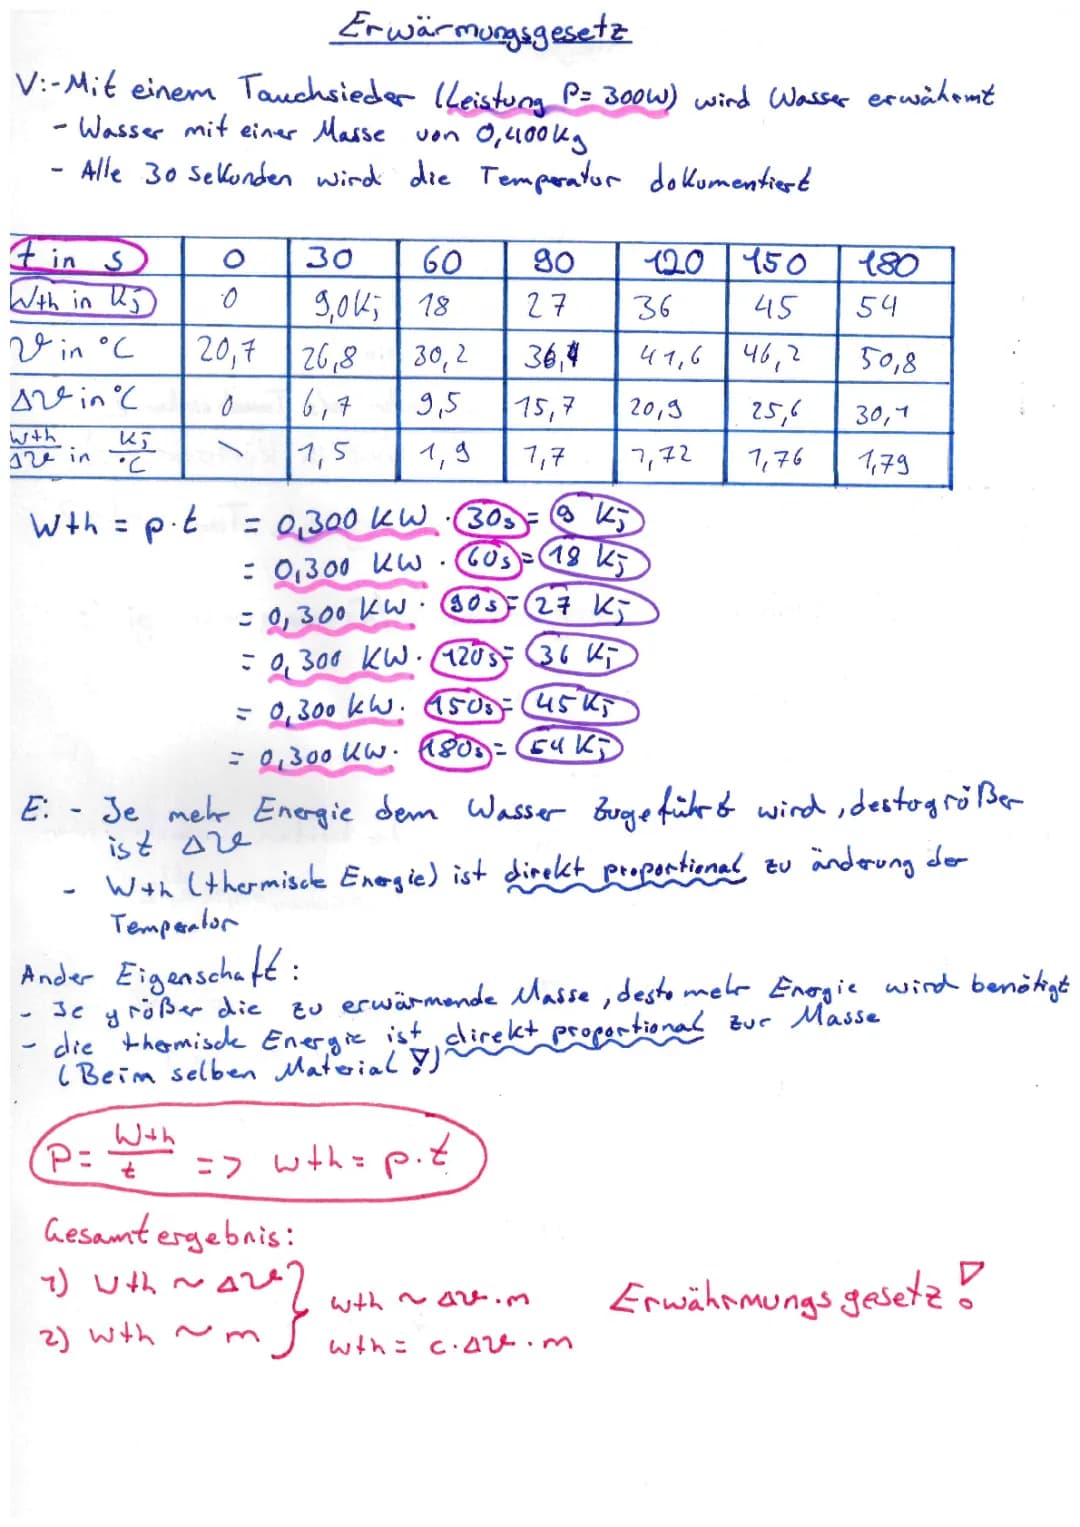 Erwärmungsgesetz
V:-Mit einem Tauchsieder (Leistung P= 300W) wird Wasser erwährmt
- Wasser mit einer Masse von 0,400kg
- Alle 30 Sekunden wird die Temperatur dokumentiert
t in s 0 30 60 90 120 150 180
Wth in Kj 0 9,0Kj 18 27 36 45 54
ϑ in °C 20,7 26,8 30,2 36,4 41,6 46,2 50,8
Δϑ in °C 0 6,7 9,5 15,7 20,9 25,6 30,1
Wth/Δϑ in Kj/°C \ 1,5 1,9 1,7 1,72 1,76 1,79
Wth = p·t = 0,300 KW · 30s = 9 Kj
= 0,300 KW · 60s = 18 Kj
= 0,300 KW · 90s = 27 Kj
= 0,300 KW · 120s = 36 Kj
= 0,300 KW · 150s = 45 Kj
= 0,300 KW · 180s = 54 Kj
E: - Je mehr Energie dem Wasser zugeführt wird, desto größer
ist Δϑ
- Wth (thermische Energie) ist direkt proportional zu änderung der
Temperatur
Ander Eigenschaft:
- Je größer die zu erwärmende Masse, desto mehr Energie wird benötigt
- die thermische Energie ist direkt proportional zur Masse
(Beim selben Material!)
P= Wth/t => Wth = p·t
Gesamtergebnis:
1) Wth ~ Δϑ } Wth ~ Δϑ·m Erwährmungsgesetz!
2) Wth ~ m } Wth = c·Δϑ·m